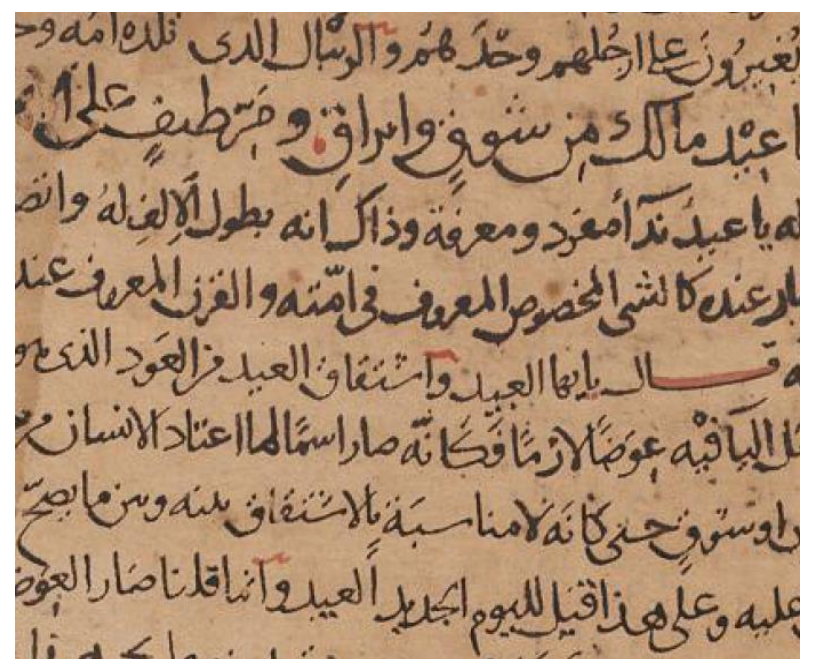 يُغيرُونَ على ارجُلهم وحْدَهُم والرئبال الذى تلده امه وحـ
يا عِيْد مالك مِن شوقٍ وايراقِ ومَرّ طيفٍ على ا
له يا عيدُ ندآ أ مفرد ومعرفة وذاك انه بطول الإلف له وا
عنده كالشى المخصوص المعروف فى امّته والقرن المعروف عند
قال يايها العيد واشتقاق العيد من العَود الذى هو
اليآ فيه عِوَضًا لازمًا فكانّه صار اسمًا لما اعتاد الانسان من
او شوقٍ حتى كانه لا مناسبة بالاشتقاق بينه وبين ما يصحّ
عليه وعلى هذا قيل لليوم الجديد العيد وانما قلنا صَار العوض